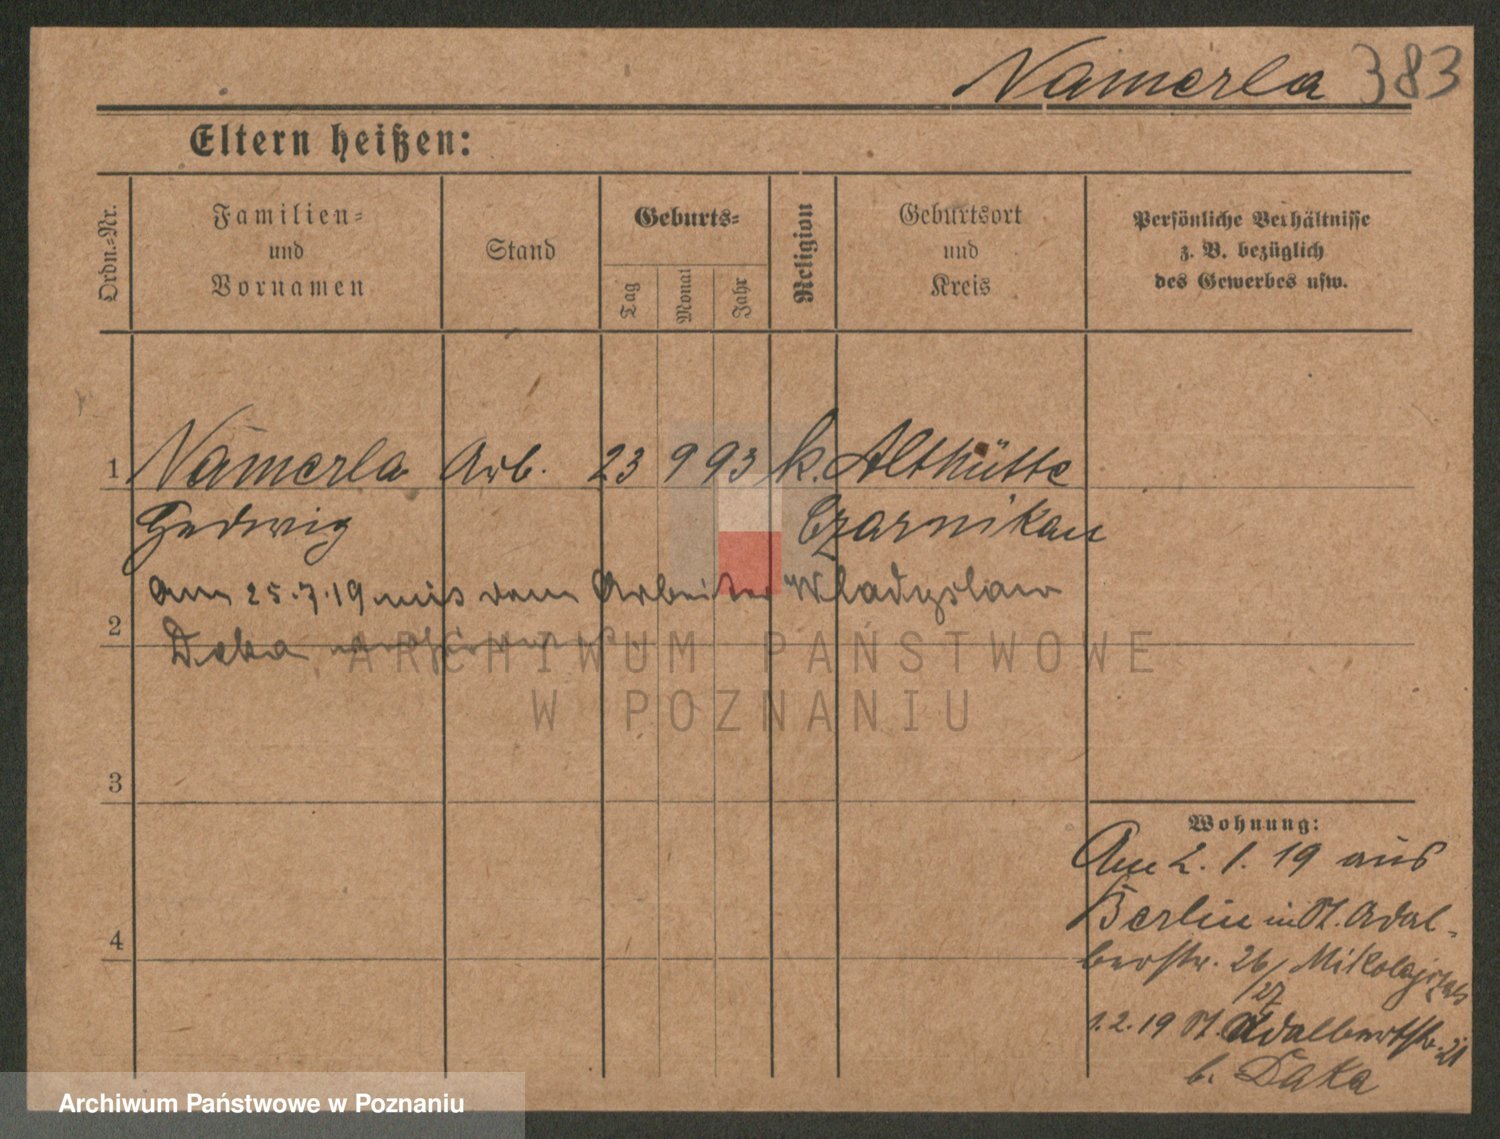 Namerla 383
Eltern heißen:
Ordn.-Nr.
Familien-
und
Vornamen
Stand
Geburts-
Tag
Monat
Jahr
Religion
Geburtsort
und
Kreis
Persönliche Verhältnisse
z. B. bezüglich
des Gewerbes usw.
1 Namerla Arb. 23 9 93 k. Althütte
Hedwig Czarnikau
Am 25.7.19 mit dem Arbeiter Wladyslaw
2
Deka
ARCHIWUM PAŃSTWOWE
W POZNANIU
3
Wohnung:
Am 2. 1. 19 aus
Berlin in St. Adal-
bertstr. 26/27
4
1.2.19 St. Adalbertstr. 21
b. Daka
Archiwum Państwowe w Poznaniu